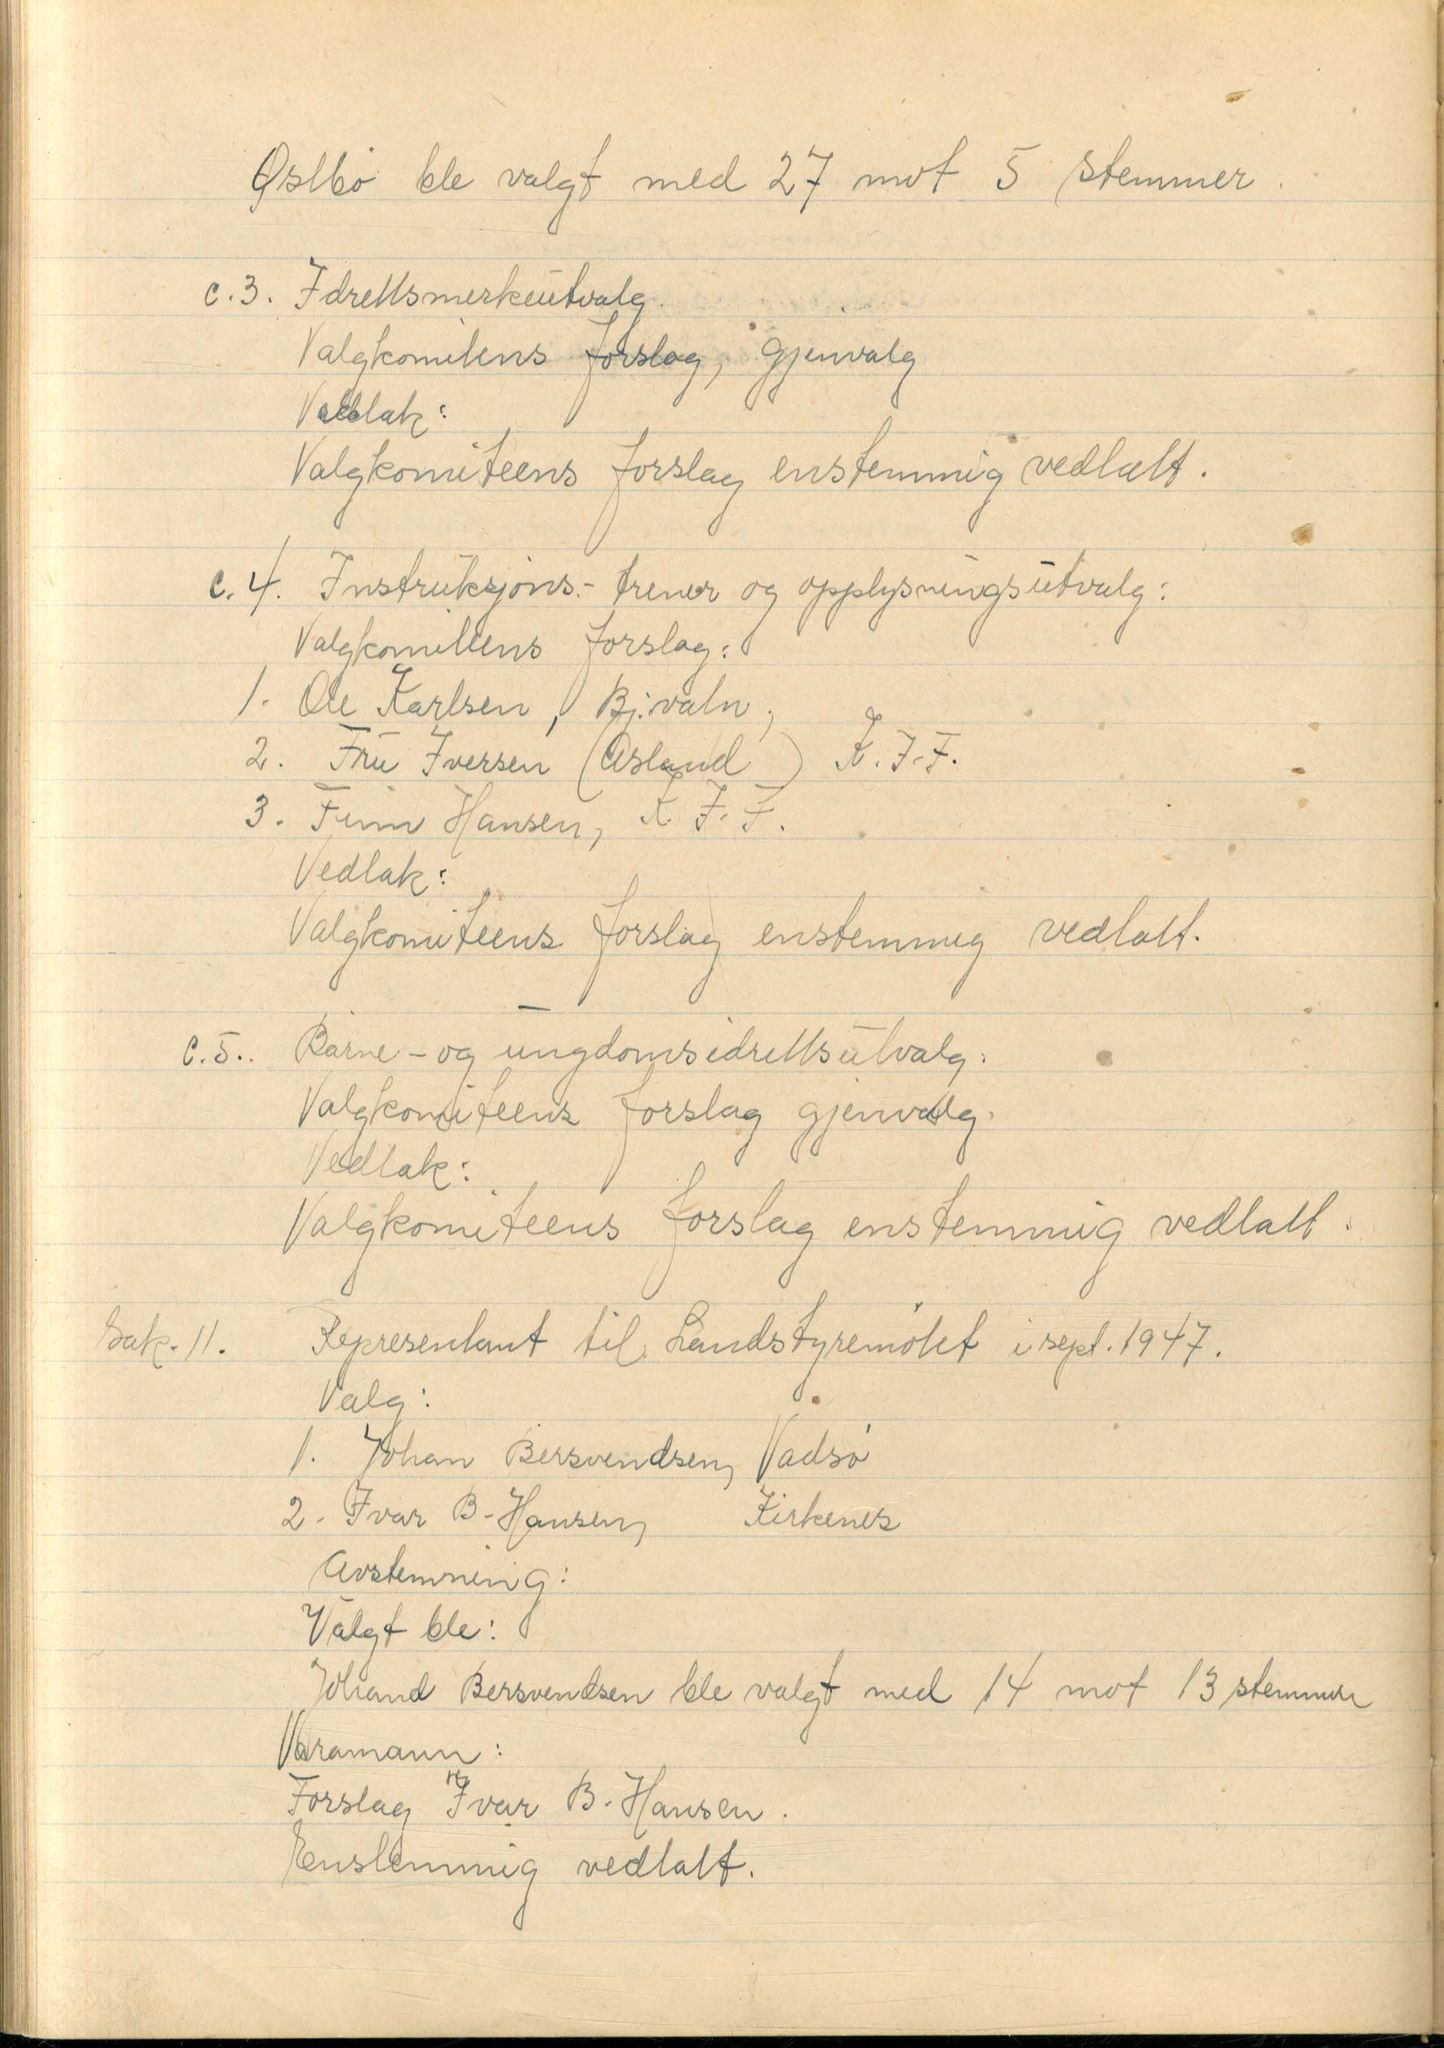 Østbö ble valgt med 27 mot 5 stemmer.
c.3. Idrettsmerkeutvalg.
Valgkomitens forslag, gjenvalg
Vedtak:
Valgkomiteens forslag enstemmig vedtatt.
c.4. Instruksjons.- trener og opplysningsutvalg:
Valgkomiteens forslag:
1. Ole Karlsen, Bj.vatn,
2. Fru Iversen (Åsland) K.I.F.
3. Finn Hansen, K.I.F.
Vedtak:
Valgkomiteens forslag enstemmig vedtatt.
c.5.. Barne - og ungdomsidrettsutvalg:
Valgkomiteens forslag gjenvalg.
Vedtak:
Valgkomiteens forslag enstemmig vedtatt.
Sak. 11. Representant til Landstyremötet i sept. 1947.
Valg:
1. Johan Bersvendsen, Vadsö
2. Ivar B. Hansen, Kirkenes
Avstemning:
Valgt ble:
Johand Bersvendsen ble valgt med 14 mot 13 stemmer
Varamann:
Forslag Ivar B. Hansen.
Enstemmig vedtatt.